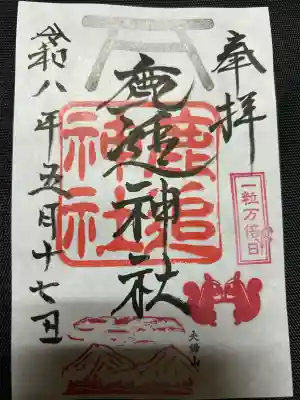 奉拝
一粒万倍日
鹿追神社
鹿追
神社
令和八年五月十七日